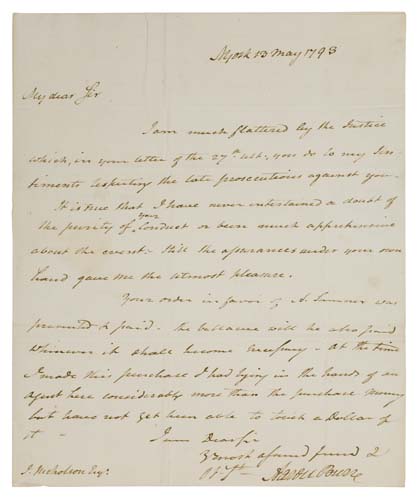 NYork 13 May 1793
My dear Sir
I am much flattered by the Justice
which, in your letter of the 27th ult, you do to my Sen-
timents respecting the late prosecutions against you.
It is true that I have never entertained a doubt of
the purity of your Conduct or been much apprehensive
about the event; still the assurances under your own
hand gave me the utmost pleasure.
Your order in favor of A. Sumner was
presented & paid. the ballance will be also paid
whenever it shall become necessary - At the time
I made this purchase I had lying in the hands of an
agent here considerably more than the purchase Money
but have not yet been able to touch a Dollar of
it -
I am Dear Sir
Yr most affec friend &
Ob St
Aaron Burr
J. Nicholson Esq.